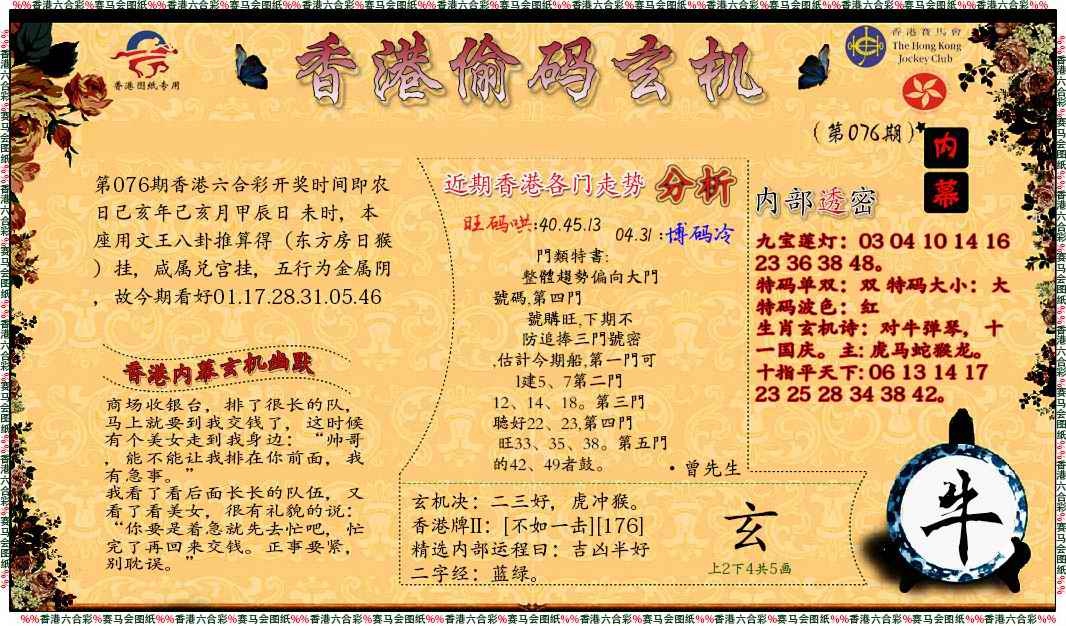 %%香港六合彩%赛马会图纸%%香港六合彩%赛马会图纸%%香港六合彩%赛马会图纸%%香港六合彩%赛马会图纸%%香港六合彩%赛马会图纸%%香港六合彩%赛马会图纸%%香港六合彩%%
香港图纸专用
香港偷码玄机
香港賽馬會
The Hong Kong
Jockey Club
(第076期)
内
幕
第076期香港六合彩开奖时间即农
日己亥年己亥月甲辰日 未时，本
座用文王八卦推算得（东方房日猴
）挂，咸属兑宫挂，五行为金属阴
，故今期看好01.17.28.31.05.46
香港内幕玄机幽默
商场收银台，排了很长的队，
马上就要到我交钱了，这时候
有个美女走到我身边：“帅哥
，能不能让我排在你前面，我
有急事。”
我看了看后面长长的队伍，又
看了看美女，很有礼貌的说：
“你要是着急就先去忙吧，忙
完了再回来交钱。正事要紧，
别耽误。”
近期香港各门走势 分析
旺码哄:40.45.13
04.31 :博码冷
門類特書:
整體趨勢偏向大門
號碼,第四門
號購旺,下期不
防追捧三門號密
,估計今期船,第一門可
1建5、7第二門
12、14、18。第三門
聽好22、23,第四門
旺33、35、38。第五門
的42、49者鼓。
·曾先生
玄机决：二三好，虎冲猴。
香港牌II：[不如一击][176]
精选内部运程曰：吉凶半好
二字经：蓝绿。
玄
上2下4共5画
内部透密
九宝莲灯：03 04 10 14 16
23 36 38 48。
特码单双：双 特码大小：大
特码波色：红
生肖玄机诗：对牛弹琴，十
一国庆。主: 虎马蛇猴龙。
十指平天下: 06 13 14 17
23 25 28 34 38 42。
牛
%%香港六合彩%赛马会图纸%%香港六合彩%赛马会图纸%%香港六合彩%赛马会图纸%%香港六合彩%赛马会图纸%%香港六合彩%赛马会图纸%%香港六合彩%赛马会图纸%%香港六合彩%%